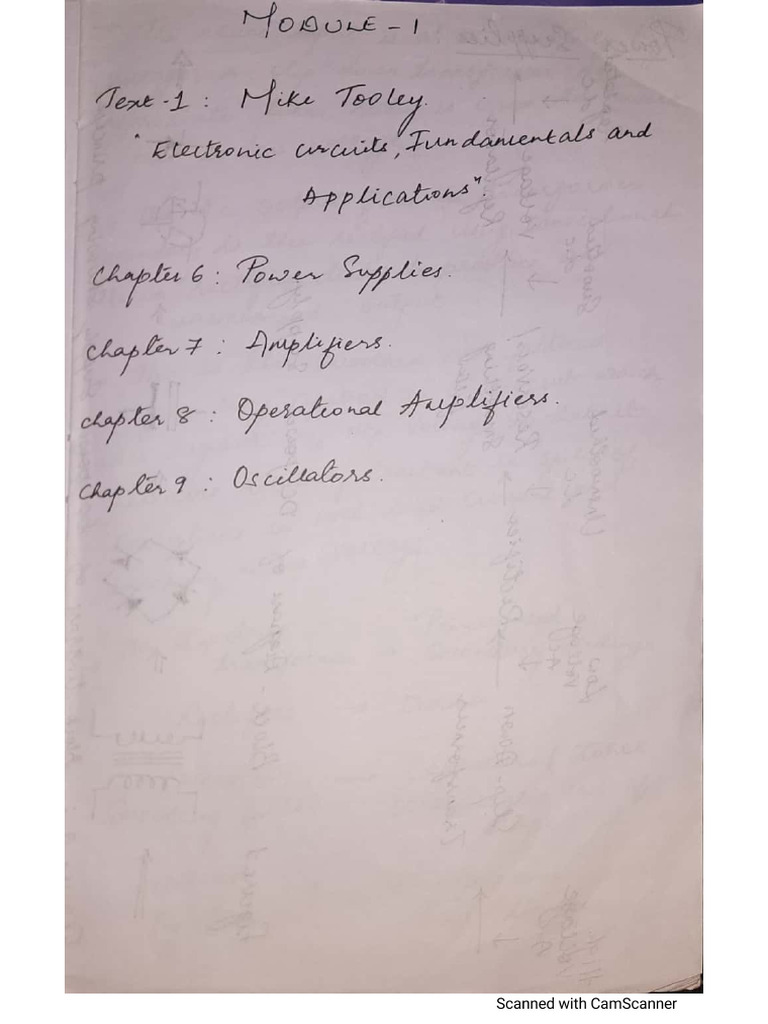 MODULE - 1
Text - 1 : Mike Tooley.
"Electronic circuits, Fundamentals and
Applications".
Chapter 6 : Power Supplies.
Chapter 7 : Amplifiers.
Chapter 8 : Operational Amplifiers.
Chapter 9 : Oscillators.
Scanned with CamScanner